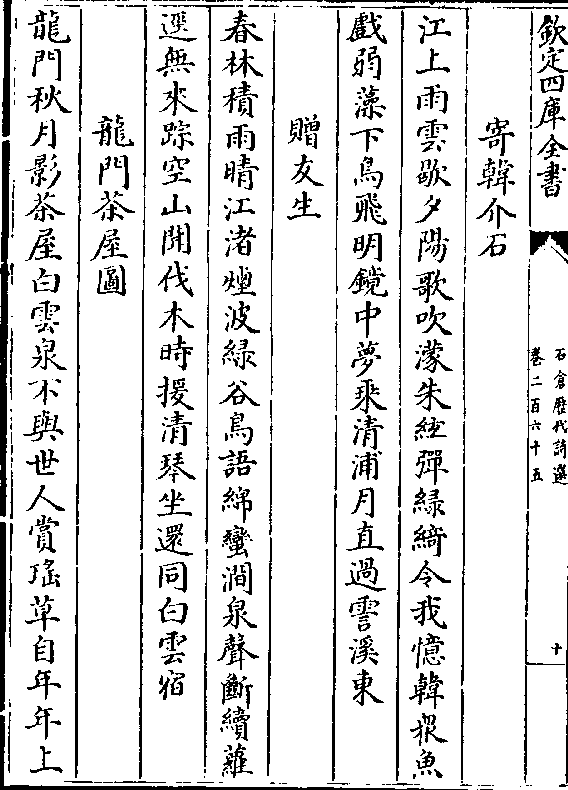 欽定四庫全書
石倉歷代詩選
卷二百六十五
十
寄韓介石
江上雨雲歇夕陽歌吹濛朱絃彈緑綺令我憶韓衆魚
戲弱藻下鳥飛明鏡中夢乘清浦月直過霅溪東
贈友生
春林積雨晴江渚煙波緑谷鳥語綿蠻澗泉聲斷續蘿
逕無來踪空山聞伐木時援清琴坐還同白雲宿
龍門茶屋圖
龍門秋月影茶屋白雲泉不與世人賞瑤草自年年上